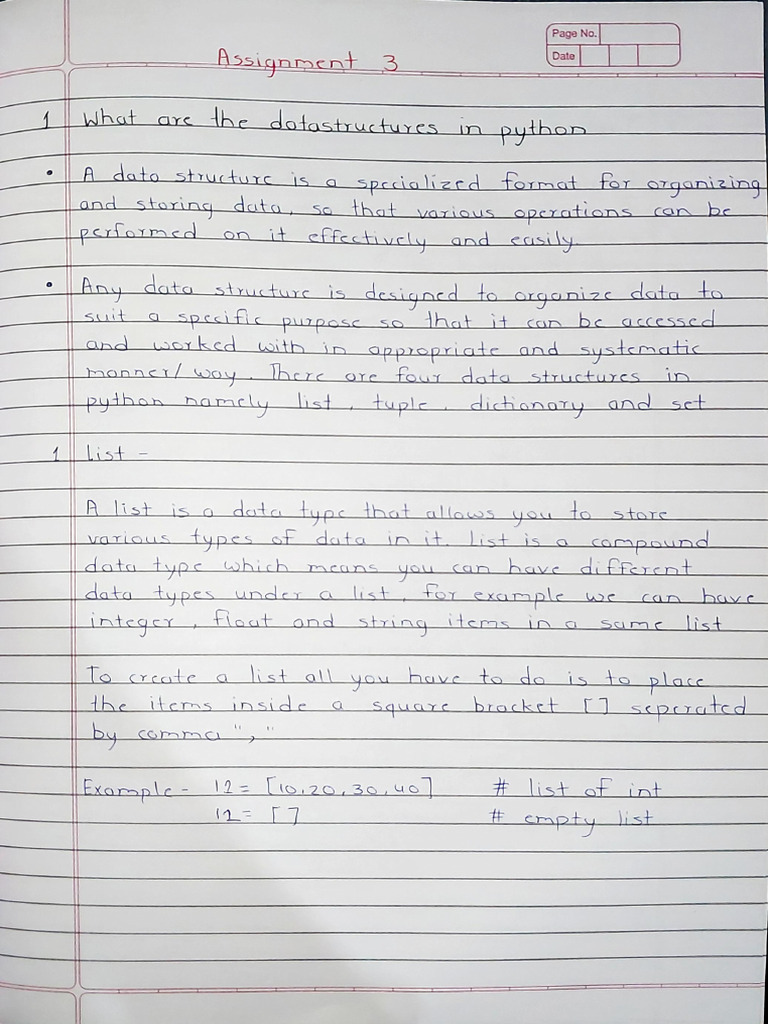 Page No.
Date
Assignment 3
1 What are the datastructures in python
• A data structure is a specialized format for organizing
and storing data, so that various operations can be
performed on it effectively and easily.
• Any data structure is designed to organize data to
suit a specific purpose so that it can be accessed
and worked with in appropriate and systematic
manner/ way. There are four data structures in
python namely list, tuple, dictionary and set
1 list -
A list is a data type that allows you to store
various types of data in it. List is a compound
data type which means you can have different
data types under a list, for example we can have
integer, float and string items in a same list
To create a list all you have to do is to place
the items inside a square bracket [] seperated
by comma ","
Example - 12 = [10,20,30,40] # list of int
12 = [] # empty list